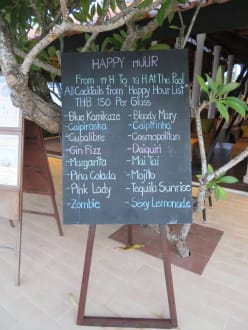 HAPPY HOUR
From 17 H To 19 H At The Pool
All Cocktails from "Happy Hour List"
THB 150 Per Glass
- Blue Kamikaze - Bloody Mary
- Caipiroska - Caipirinha
- Cubalibre - Cosmopolitan
- Gin Fizz - Daiquiri
- Margarita - Mai Tai
- Pina Colada - Mojito
- Pink Lady - Tequila Sunrise
- Zombie - Sexy Lemonade